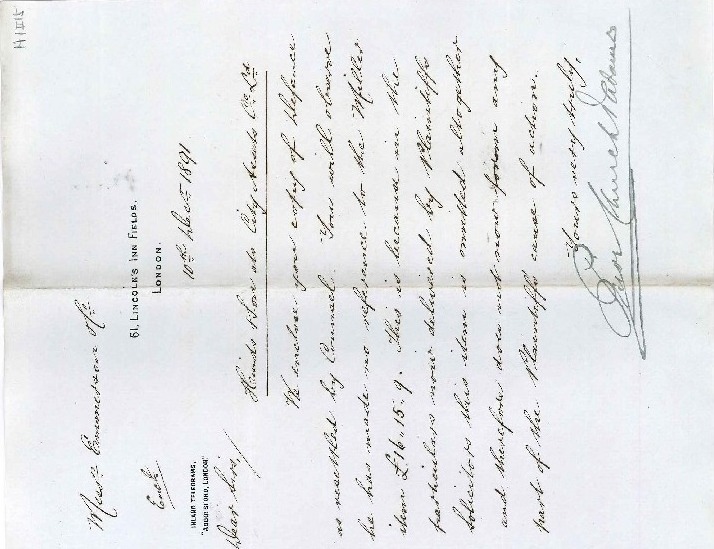 61, LINCOLN'S INN FIELDS,
LONDON.
10th Decr 1891
Messrs Emmerson & Co
INLAND TELEGRAMS,
LONDON"
Dear Sirs,
Hinds & Son ats City Lands Co Ld
We enclose you copy of Defence
as resettled by Counsel. You will observe
he has made no reference to the Miller
item £16.15.9. This is because in the
particulars now delivered by Plaintiffs
Solicitors this item is omitted altogether
and therefore does not now form any
part of the Plaintiffs cause of action.
Yours very truly,
Church Adams